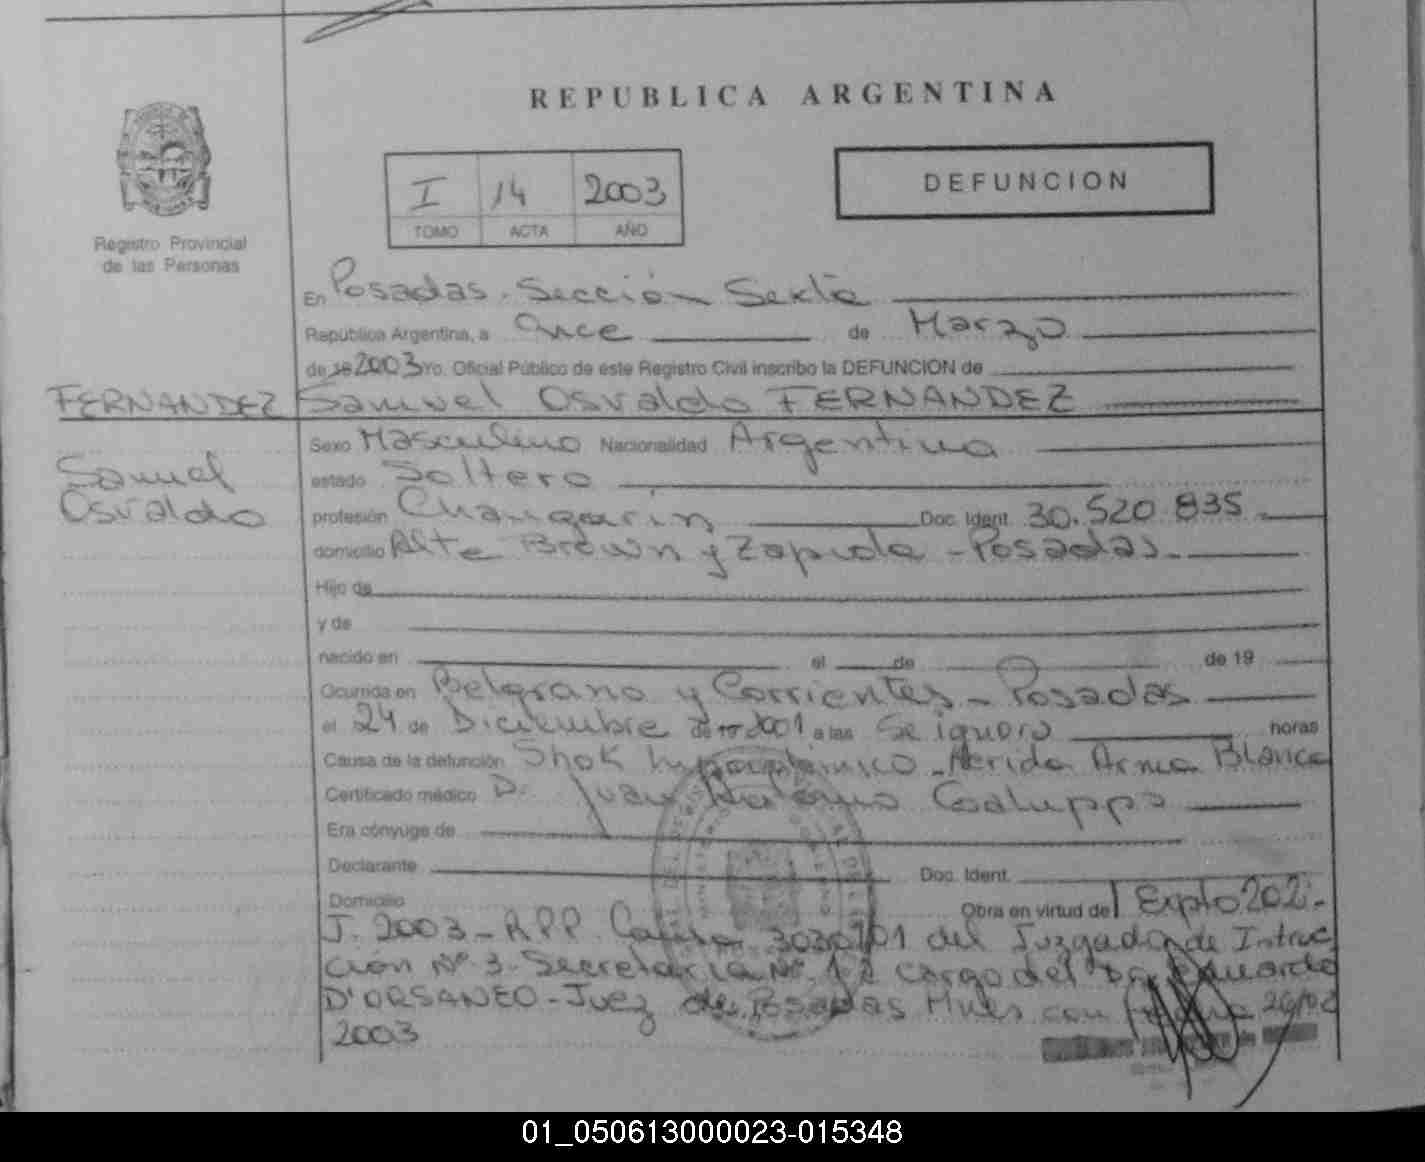 REPUBLICA ARGENTINA
Registro Provincial
de las Personas
I 14 2003
TOMO ACTA AÑO
DEFUNCION
En Posadas. Sección Sexta
República Argentina, a Once de Marzo
de 2003 Yo. Oficial Público de este Registro Civil inscribo la DEFUNCION de
FERNANDEZ Samuel Osvaldo FERNANDEZ
Samuel
Osvaldo
Sexo Masculino Nacionalidad Argentina
estado Soltero
profesión Changarin Doc. Ident. 30.520.835
domicilio Alte Brown y Zapiola - Posadas
Hijo de
y de
nacido en el de de 19
Ocurrida en Belgrano y Corrientes - Posadas
el 24 de Diciembre de 2001 a las Se ignora horas
Causa de la defunción Shok - Herida Arma Blanca
Certificado médico D. Juan Galuppo
Era cónyuge de
Declarante Doc. Ident.
Domicilio Obra en virtud del Expto 202-
J. 2003 - RPP. del Juzgado de Instruc
ción Nº 3. Secretaria Nº 1 a cargo del Dr. Eduardo
D'ORSANEO - Juez de Posadas Mnes con fecha
2003
01_050613000023-015348